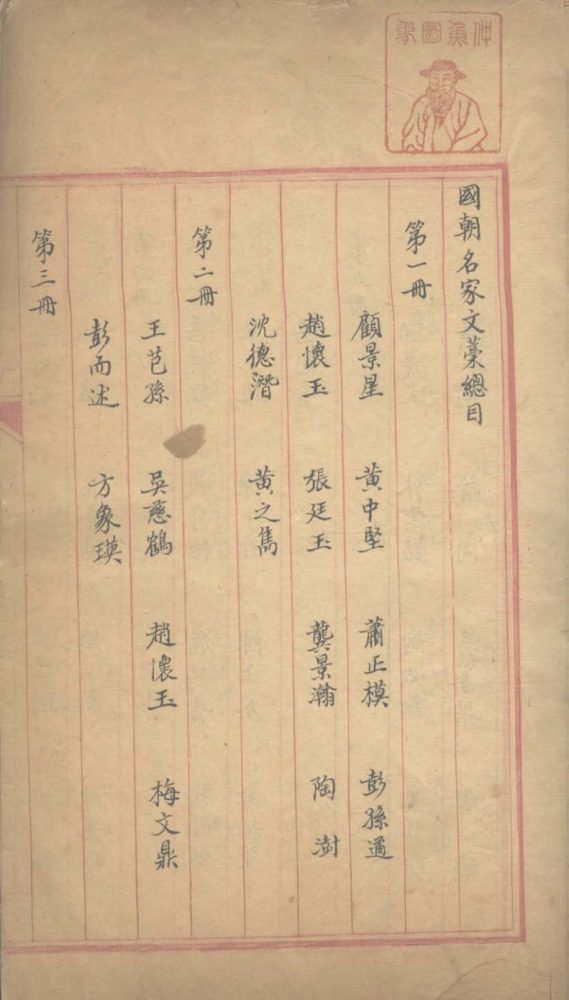 仲魚圖象
國朝名家文藁總目
第一冊
顧景星 黃中堅 蕭正模 彭孫遹
趙懷玉 張廷玉 龔景瀚 陶澍
沈德潛 黃之雋
第二冊
王芑孫 吳慈鶴 趙懷玉 梅文鼎
彭而述 方象瑛
第三冊